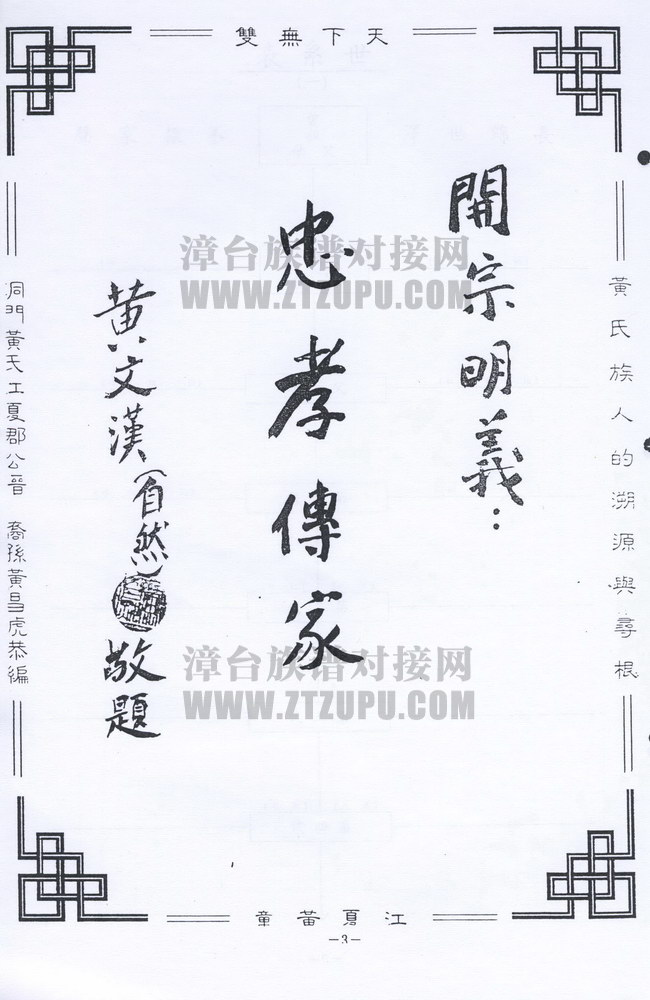 天下無雙
黃氏族人的溯源與尋根
開宗明義：
忠孝傳家
黄文漢（自然）敬題
洞門黃氏江夏郡公晉 裔孫黃昌虎恭編
漳台族谱对接网
WWW.ZTZUPU.COM
漳台族谱对接网
WWW.ZTZUPU.COM
江夏黃童
－3－